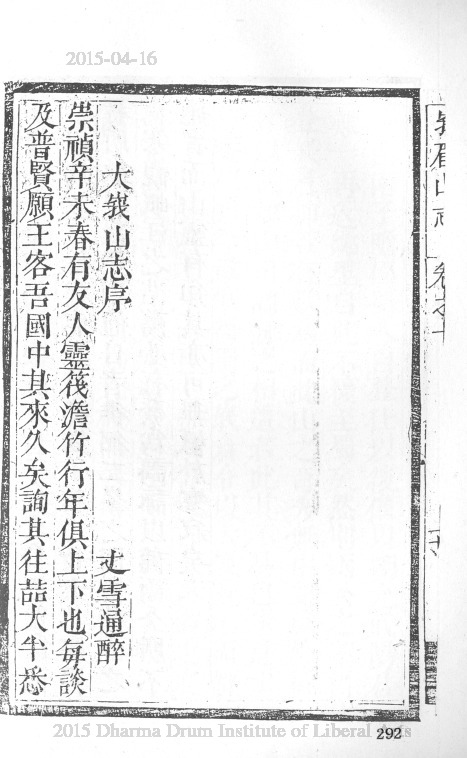 2015-04-16
峩眉山志
大峩山志序
丈雪通醉
崇禎辛未春有友人靈筏澹竹行年俱上下也每談
及普賢願王客吾國中其來久矣詢其往喆大半悉
2015 Dharma Drum Institute of Liberal Arts
292